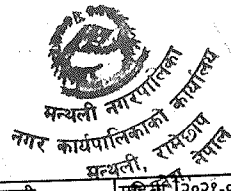 मन्थली नगरपालिका
नगर कार्यपालिकाको कार्यालय
मन्थली, रामेछाप
नेपाल